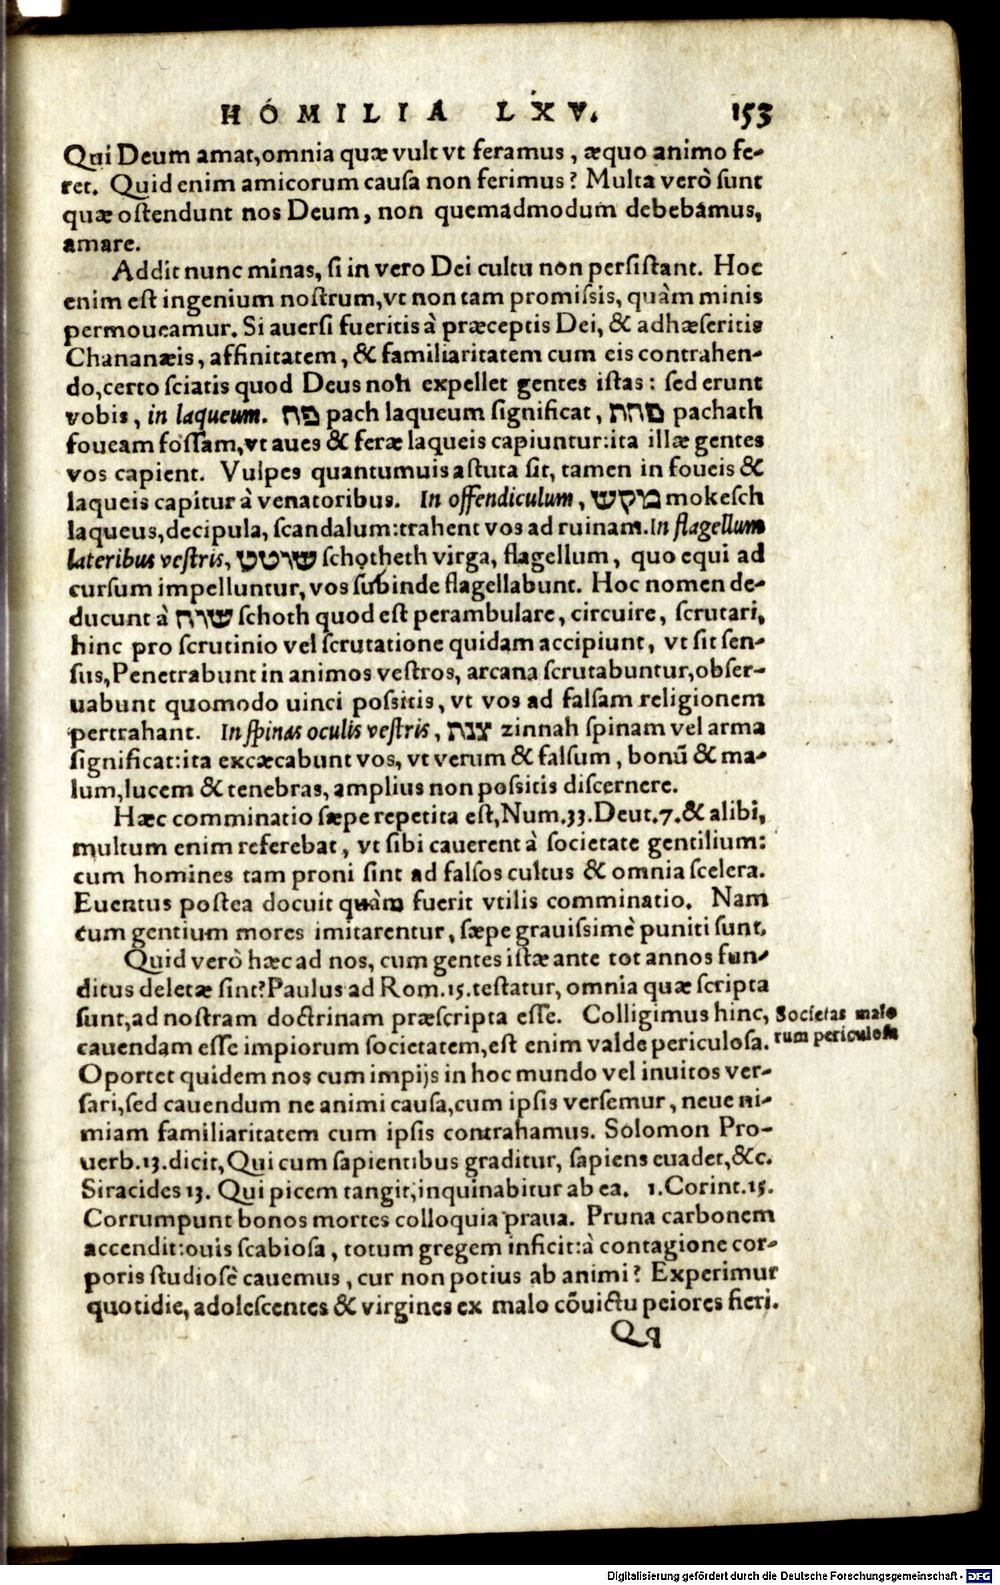 HOMILIA LXV. 153
Qui Deum amat, omnia quæ vult vt feramus, æquo animo fe-
ret. Quid enim amicorum causa non ferimus? Multa verò sunt
quæ ostendunt nos Deum, non quemadmodum debebamus,
amare.
Addit nunc minas, si in vero Dei cultu non persistant. Hoc
enim est ingenium nostrum, vt non tam promissis, quàm minis
permoueamur. Si auersi fueritis à præceptis Dei, & adhæseritis
Chananæis, affinitatem, & familiaritatem cum eis contrahen-
do, certo sciatis quod Deus non expellet gentes istas: sed erunt
vobis, in laqueum. פח pach laqueum significat, פחת pachath
foueam fossam, vt aues & feræ laqueis capiuntur: ita illæ gentes
vos capient. Vulpes quantumuis astuta sit, tamen in foueis &
laqueis capitur à venatoribus. In offendiculum, מוקש mokesch
laqueus, decipula, scandalum: trahent vos ad ruinam. In flagellum
lateribus vestris, שוטט schotheth virga, flagellum, quo equi ad
cursum impelluntur, vos subinde flagellabunt. Hoc nomen de-
ducunt à שוה schoth quod est perambulare, circuire, scrutari,
hinc pro scrutinio vel scrutatione quidam accipiunt, vt sit sen-
sus, Penetrabunt in animos vestros, arcana scrutabuntur, obser-
uabunt quomodo uinci possitis, vt vos ad falsam religionem
pertrahant. In spinas oculis vestris, צנה zinnah spinam vel arma
significat: ita excæcabunt vos, vt verum & falsum, bonū & ma-
lum, lucem & tenebras, amplius non possitis discernere.
Hæc comminatio sæpe repetita est, Num. 33. Deut. 7. & alibi,
multum enim referebat, vt sibi cauerent à societate gentilium:
cum homines tam proni sint ad falsos cultus & omnia scelera.
Euentus postea docuit quàm fuerit vtilis comminatio. Nam
cum gentium mores imitarentur, sæpe grauissimè puniti sunt.
Quid verò hæc ad nos, cum gentes istæ ante tot annos fun-
ditus deletæ sint? Paulus ad Rom. 15. testatur, omnia quæ scripta
sunt, ad nostram doctrinam præscripta esse. Colligimus hinc, Societas malo
cauendam esse impiorum societatem, est enim valde periculosa. rum periculosa
Oportet quidem nos cum impijs in hoc mundo vel inuitos ver-
sari, sed cauendum ne animi causa, cum ipsis versemur, neue ni-
miam familiaritatem cum ipsis contrahamus. Solomon Pro-
uerb. 13. dicit, Qui cum sapientibus graditur, sapiens euadet, &c.
Siracides 13. Qui picem tangit, inquinabitur ab ea. 1. Corint. 15.
Corrumpunt bonos mortes colloquia praua. Pruna carbonem
accendit: ouis scabiosa, totum gregem inficit: à contagione cor-
poris studiosè cauemus, cur non potius ab animi? Experimur
quotidie, adolescentes & virgines ex malo cōuictu peiores fieri.
Qq
Digitalisierung gefördert durch die Deutsche Forschungsgemeinschaft - DFG